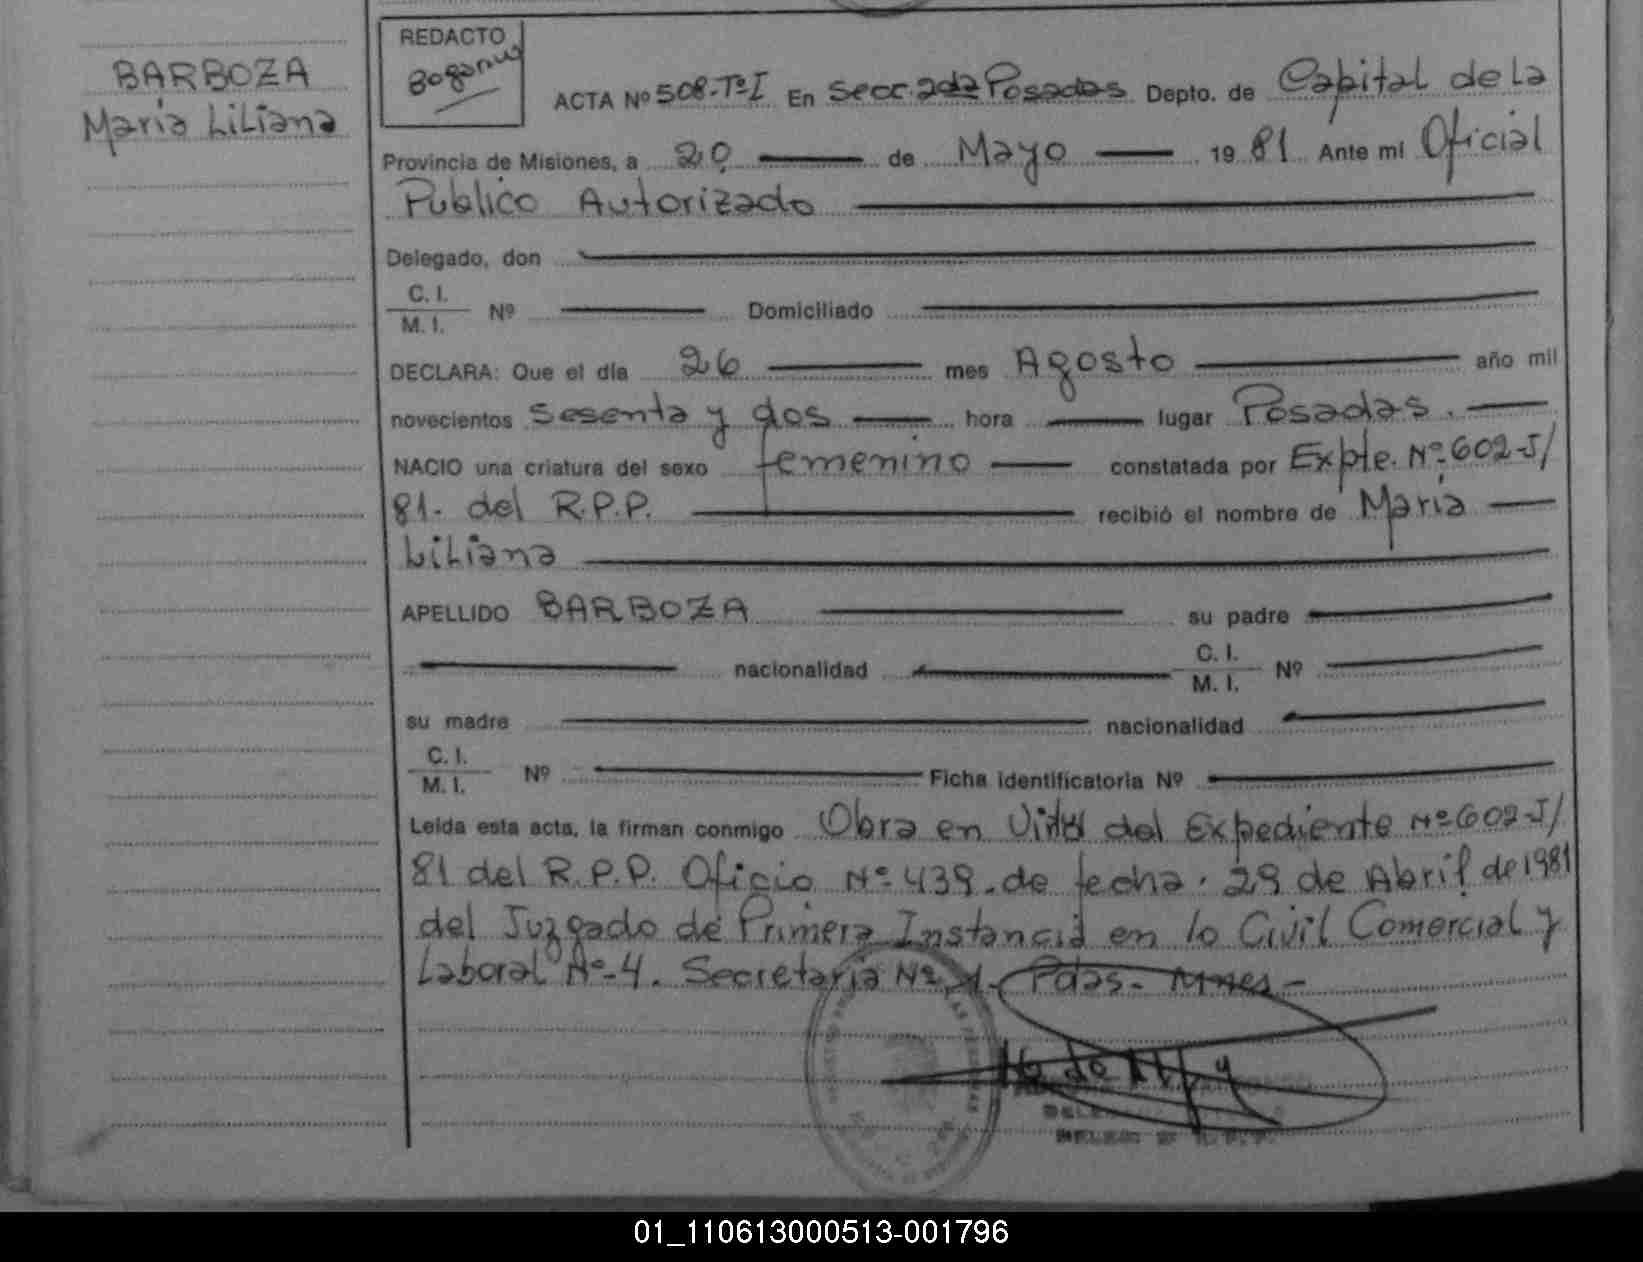 BARBOZA
Maria Liliana
REDACTO
ACTA Nº 508-TºI En Secc. 2da Posadas Depto. de Capital de La
Provincia de Misiones, a 20 de Mayo 1981 Ante mi Oficial
Publico Autorizado
Delegado, don
C. I.
M. I. Nº Domiciliado
DECLARA: Que el día 26 mes Agosto año mil
novecientos Sesenta y dos hora lugar Posadas.
NACIO una criatura del sexo femenino constatada por Expte. Nº 602-J/
81- del R.P.P. recibió el nombre de Maria
Liliana
APELLIDO BARBOZA su padre
nacionalidad C. I.
M. I. Nº
su madre nacionalidad
C. I.
M. I. Nº Ficha identificatoria Nº
Leída esta acta, la firman conmigo Obra en del Expediente Nº 602-J/
81 del R.P.P. Oficio Nº 439. de fecha. 29 de Abril de 1981
del Juzgado de Primera Instancia en lo Civil Comercial y
Laboral Nº-4. Secretaria Nº 1. Pdas- Mnes-
01_110613000513-001796